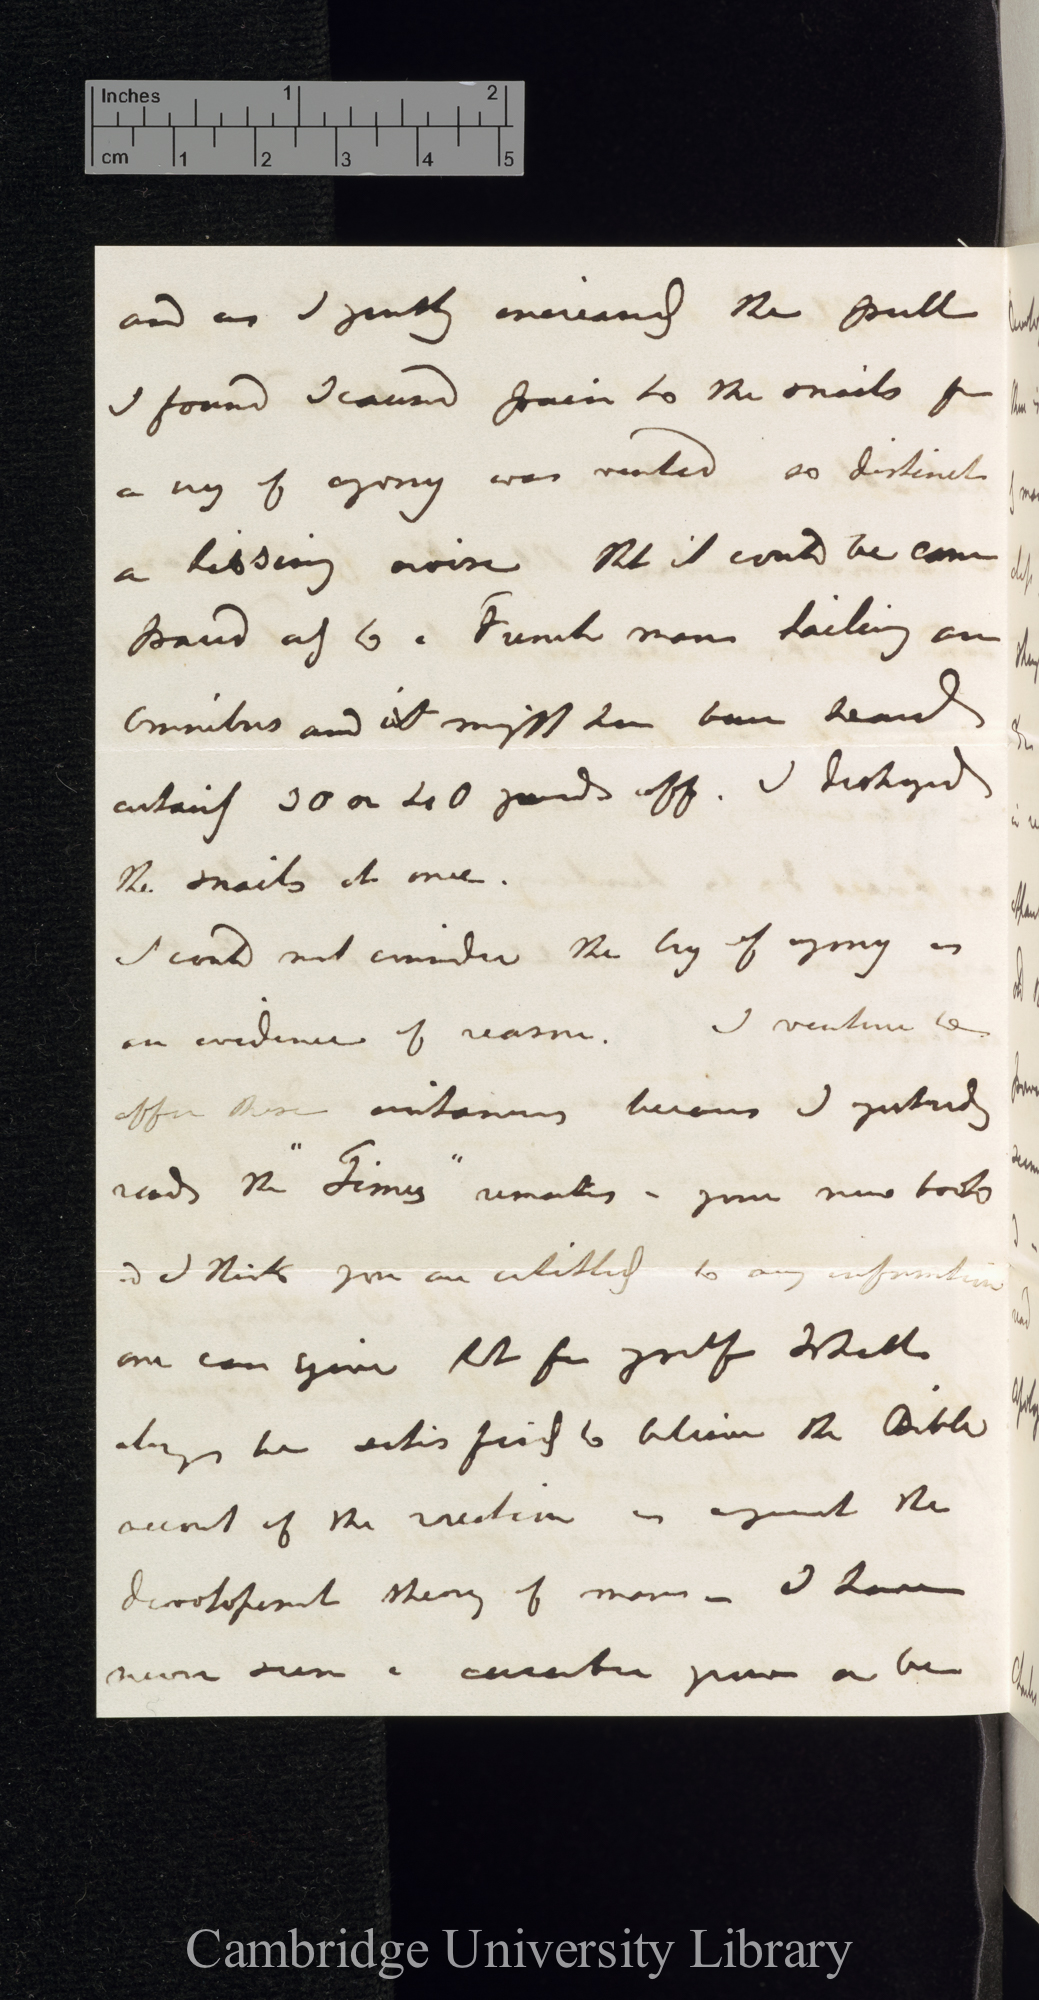 Inches 1 2
cm 1 2 3 4 5
and as I gently increased the pull
I found I caused pain to the snails for
a cry of agony was vented so distinct
a hissing noise tht it could be com
pared only to a French man hailing an
Omnibus and it might have been heard
certainly 30 or 40 yards off. I destroyed
the snails at once.
I could not consider the cry of agony as
an evidence of reason. I venture to
offer these instances because I yesterday
read the "Times" remarks on your new book
and I think you are entitled to any information
one can give but for myself I shall
always be satisfied to believe the Bible
account of the creation as against the
development theory of man — I have
never seen a cucumber grow or be
Cambridge University Library